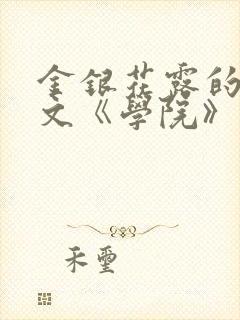 金銀花露的
文《學院》
禾璽